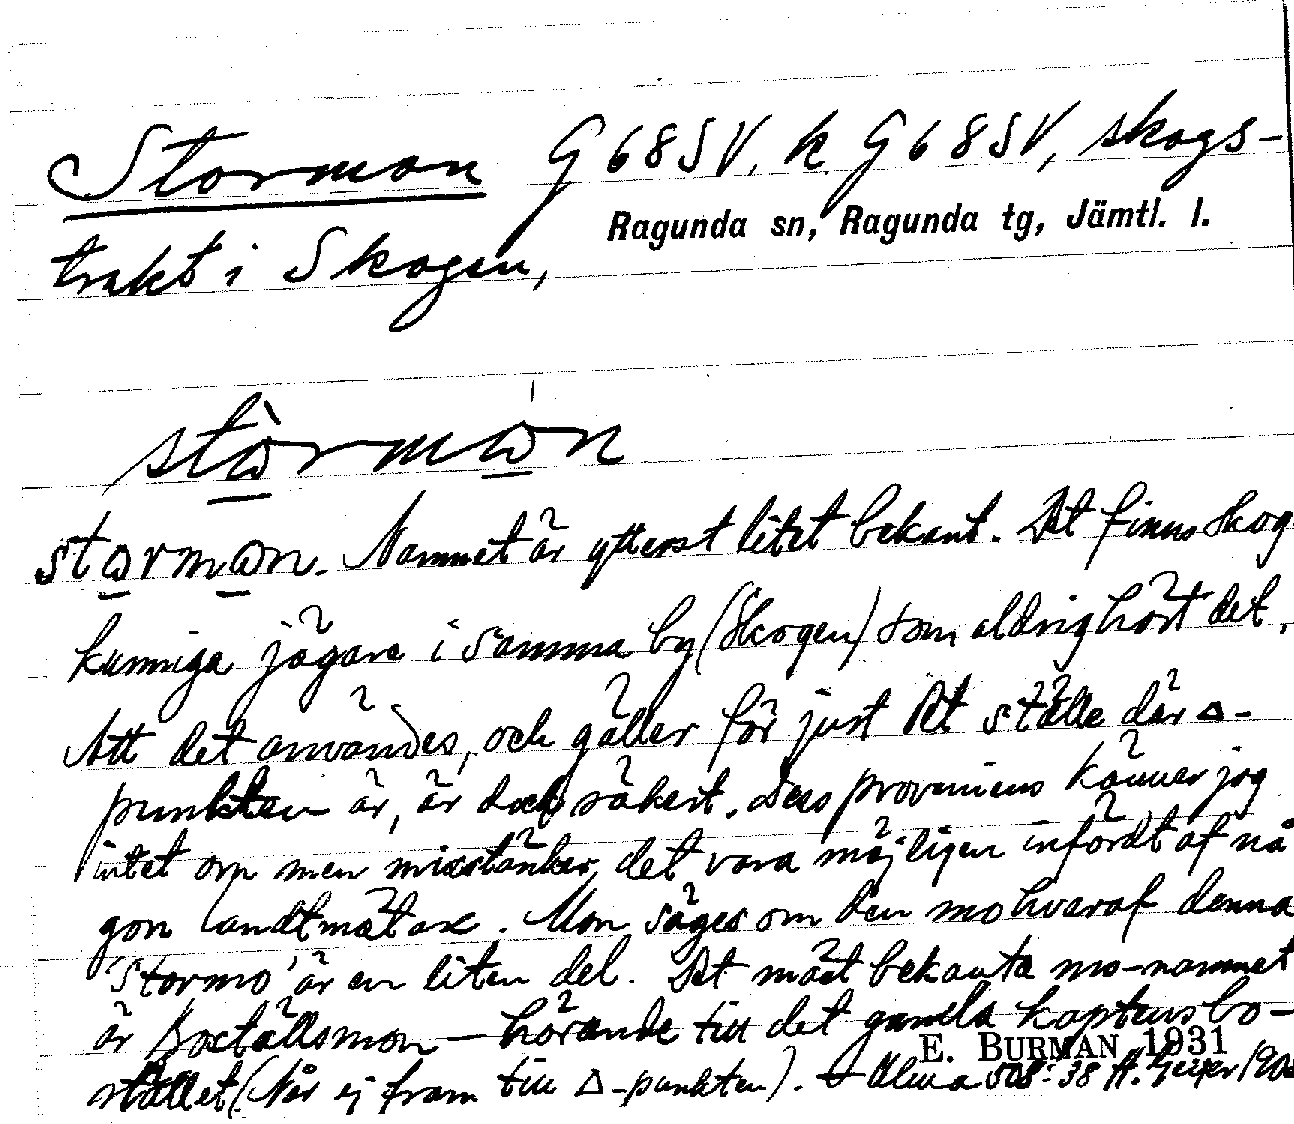 Stormon G 68 SV, k G 68 SV, skogs-
Ragunda sn, Ragunda tg, Jämtl. l.
trakt i Skogen,
stòrmon
stormon. Namnet är ytterst litet bekant. Det finns skog
kunniga jägare i samma by (Skogen) som aldrig hört det.
Att det användes, och gäller för just det ställe där Δ-
punkten är, är dock säkert. Dess proveniens känner jag
intet om men misstänker det vara möjligen infördt af nå
gon landtmätare. Mon säges om den mo hvaraf denna
'Stormo' är en liten del. Det mäst bekanta mo-namnet
är - hörande till det gamla kaptensbo-
stället (Når ej fram till Δ-punkten). 508:38 H. Geijer
E. BURMAN 1931